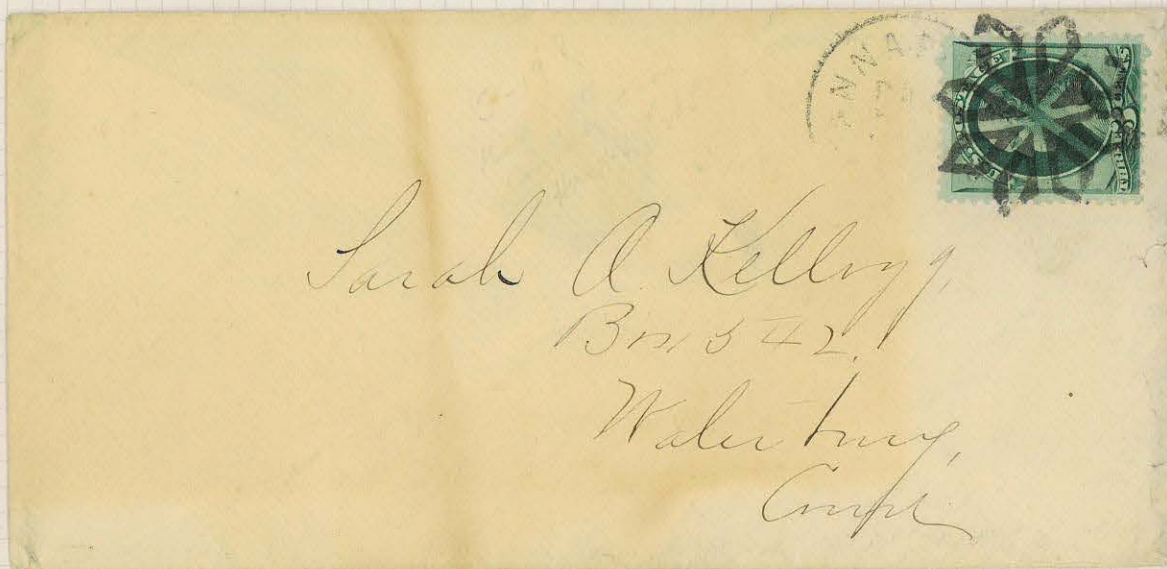 Sarah A Kellogg,
Box 542.
Waterbury,
Conn